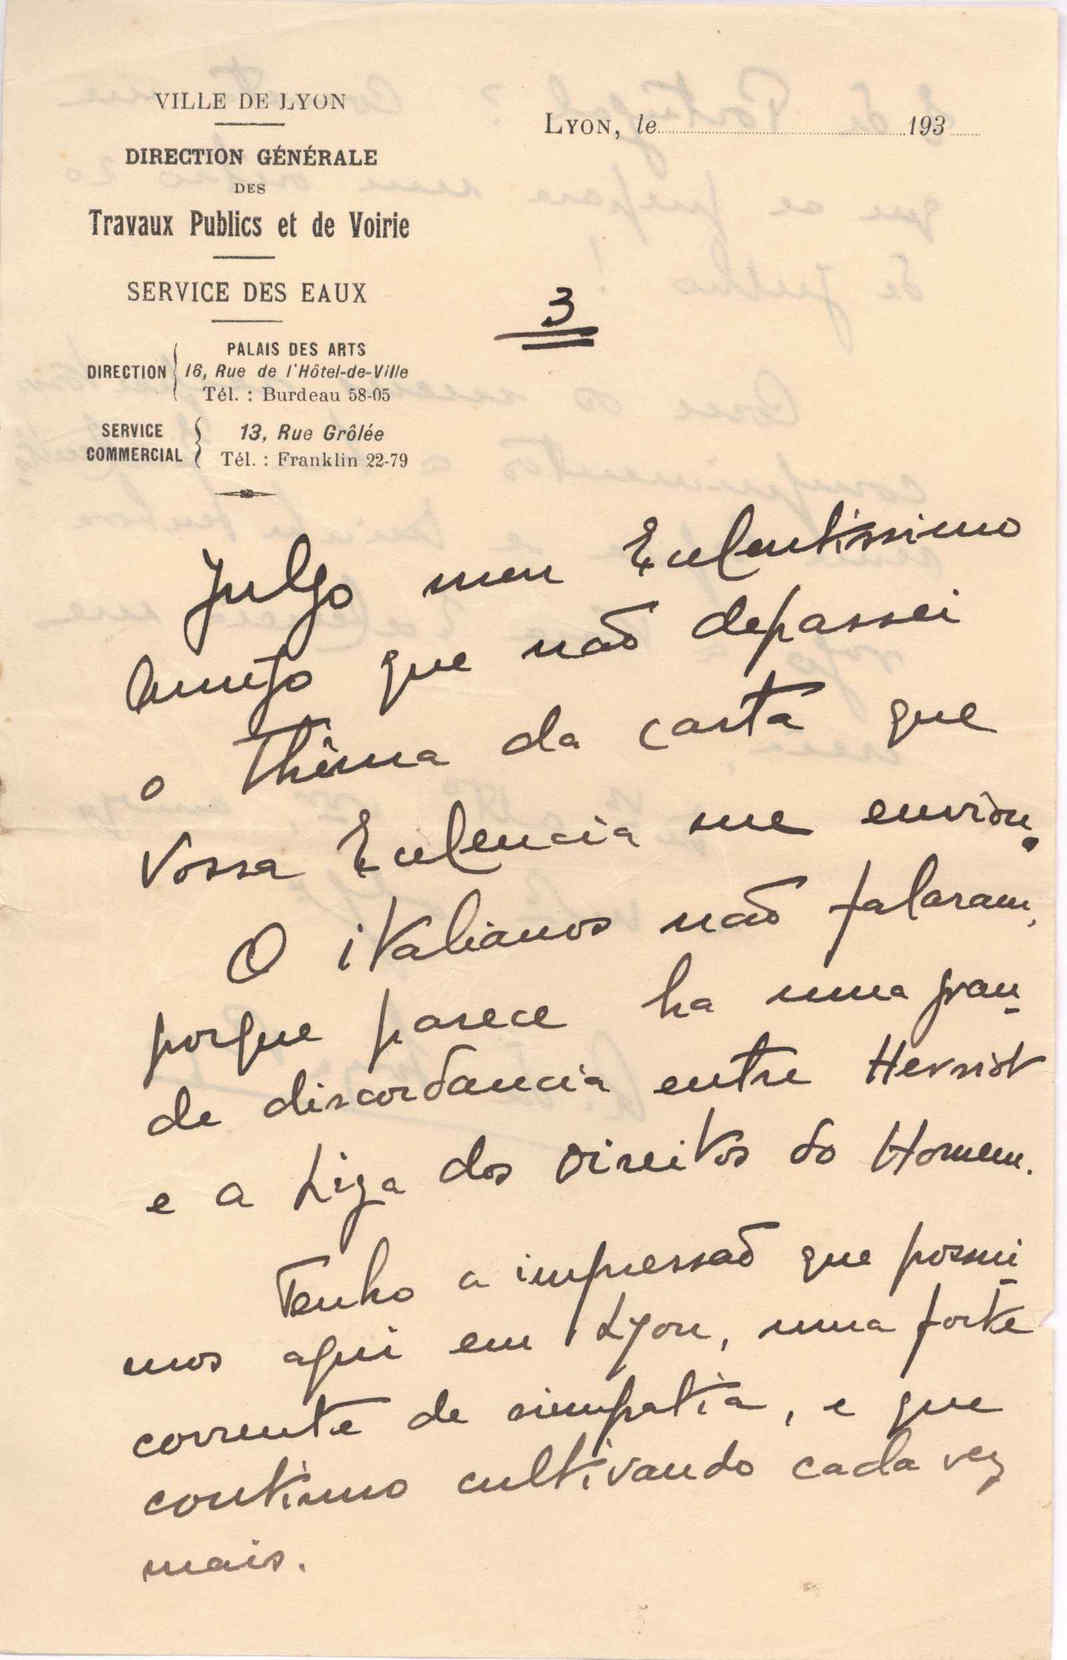 VILLE DE LYON
DIRECTION GÉNÉRALE
DES
Travaux Publics et de Voirie
SERVICE DES EAUX
DIRECTION PALAIS DES ARTS
16, Rue de l'Hôtel-de-Ville
Tél. : Burdeau 58-05
SERVICE COMMERCIAL 13, Rue Grôlée
Tél. : Franklin 22-79
LYON, le 193
3
Julgo meu Exclentissimo
Amigo que não depassei
o thêma da carta que
Vossa Exclencia me enviou.
O italianos não falaram,
porque parece ha uma gran-
de discordancia entre Herriot
e a Liga dos Direitos do Homem.
Tenho a impressão que possui-
mos aqui em Lyon, uma forte
corrente de simpatia, e que
continuo cultivando cada vez
mais.